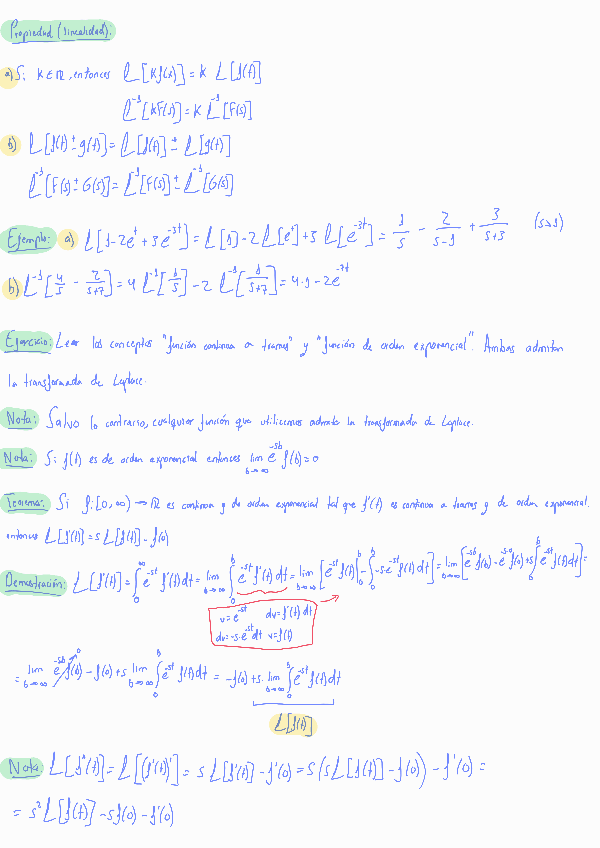 Propiedad (linealidad):
a) Si K ∈ ℝ, entonces L[Kf(x)] = K L[f(t)]
L⁻¹[KF(s)] = K L⁻¹[F(s)]
b) L[f(t) ± g(t)] = L[f(t)] ± L[g(t)]
L⁻¹[F(s) ± G(s)] = L⁻¹[F(s)] ± L⁻¹[G(s)]
Ejemplo: a) L[1-2eᵗ+3e⁻³ᵗ] = L[1]-2 L[eᵗ]+3 L[e⁻³ᵗ] = 1/s - 2/(s-1) + 3/(s+3) (s>1)
b) L⁻¹[4/s - 2/(s+7)] = 4 L⁻¹[1/s] - 2 L⁻¹[1/(s+7)] = 4·1 - 2e⁻⁷ᵗ
Ejercicio: Leer los conceptos "función continua a tramos" y "función de orden exponencial". Ambas admiten
la transformada de Laplace.
Nota: Salvo lo contrario, cualquier función que utilicemos admite la transformada de Laplace.
Nota: Si f(t) es de orden exponencial entonces lim b→∞ e^(-sb) f(b) = 0
Teorema: Si f:[0,∞) → ℝ es continua y de orden exponencial tal que f'(t) es continua a tramos y de orden exponencial,
entonces L[f'(t)] = s L[f(t)] - f(0)
Demostración: L[f'(t)] = ∫₀^∞ e^(-st) f'(t) dt = lim b→∞ ∫₀^b e^(-st) f'(t) dt = lim b→∞ [e^(-st) f(t)]₀^b - ∫₀^b -s·e^(-st) f(t) dt] = lim b→∞ [e^(-sb) f(b) - e^(-s·0) f(0) + s∫₀^b e^(-st) f(t) dt] =
u = e^(-st) dv = f'(t) dt
du = -s·e^(-st) dt v = f(t)
= lim b→∞ e^(-sb) f(b) 0 - f(0) + s lim b→∞ ∫₀^b e^(-st) f(t) dt = -f(0) + s· lim b→∞ ∫₀^b e^(-st) f(t) dt
L[f(t)]
Nota L[f''(t)] = L[(f'(t))'] = s L[f'(t)] - f'(0) = s(s L[f(t)] - f(0)) - f'(0) =
= s² L[f(t)] - sf(0) - f'(0)